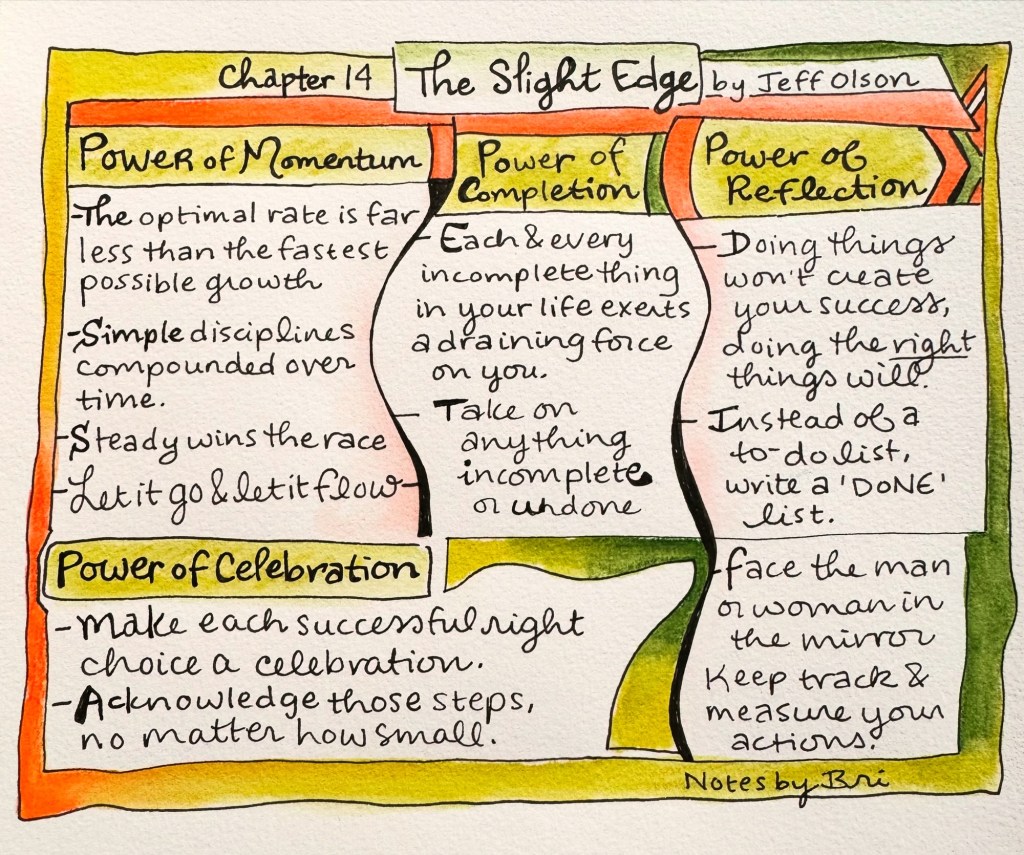 Chapter 14 The Slight Edge by Jeff Olson
Power of Momentum
-The optimal rate is far
less than the fastest
possible growth
-Simple disciplines
compounded over
time.
-Steady wins the race
-Let it go & let it flow-
Power of
Completion
- Each & every
incomplete thing
in your life exerts
a draining force
on you.
- Take on
anything
incomplete
or undone
Power of
Reflection
- Doing things
won't create
your success,
doing the right
things will.
- Instead of a
to-do list,
write a 'DONE'
list.
- Face the man
or woman in
the mirror
Keep track &
measure your
actions.
Power of Celebration
- Make each successful right
choice a celebration.
- Acknowledge those steps,
no matter how small.
Notes by Bri